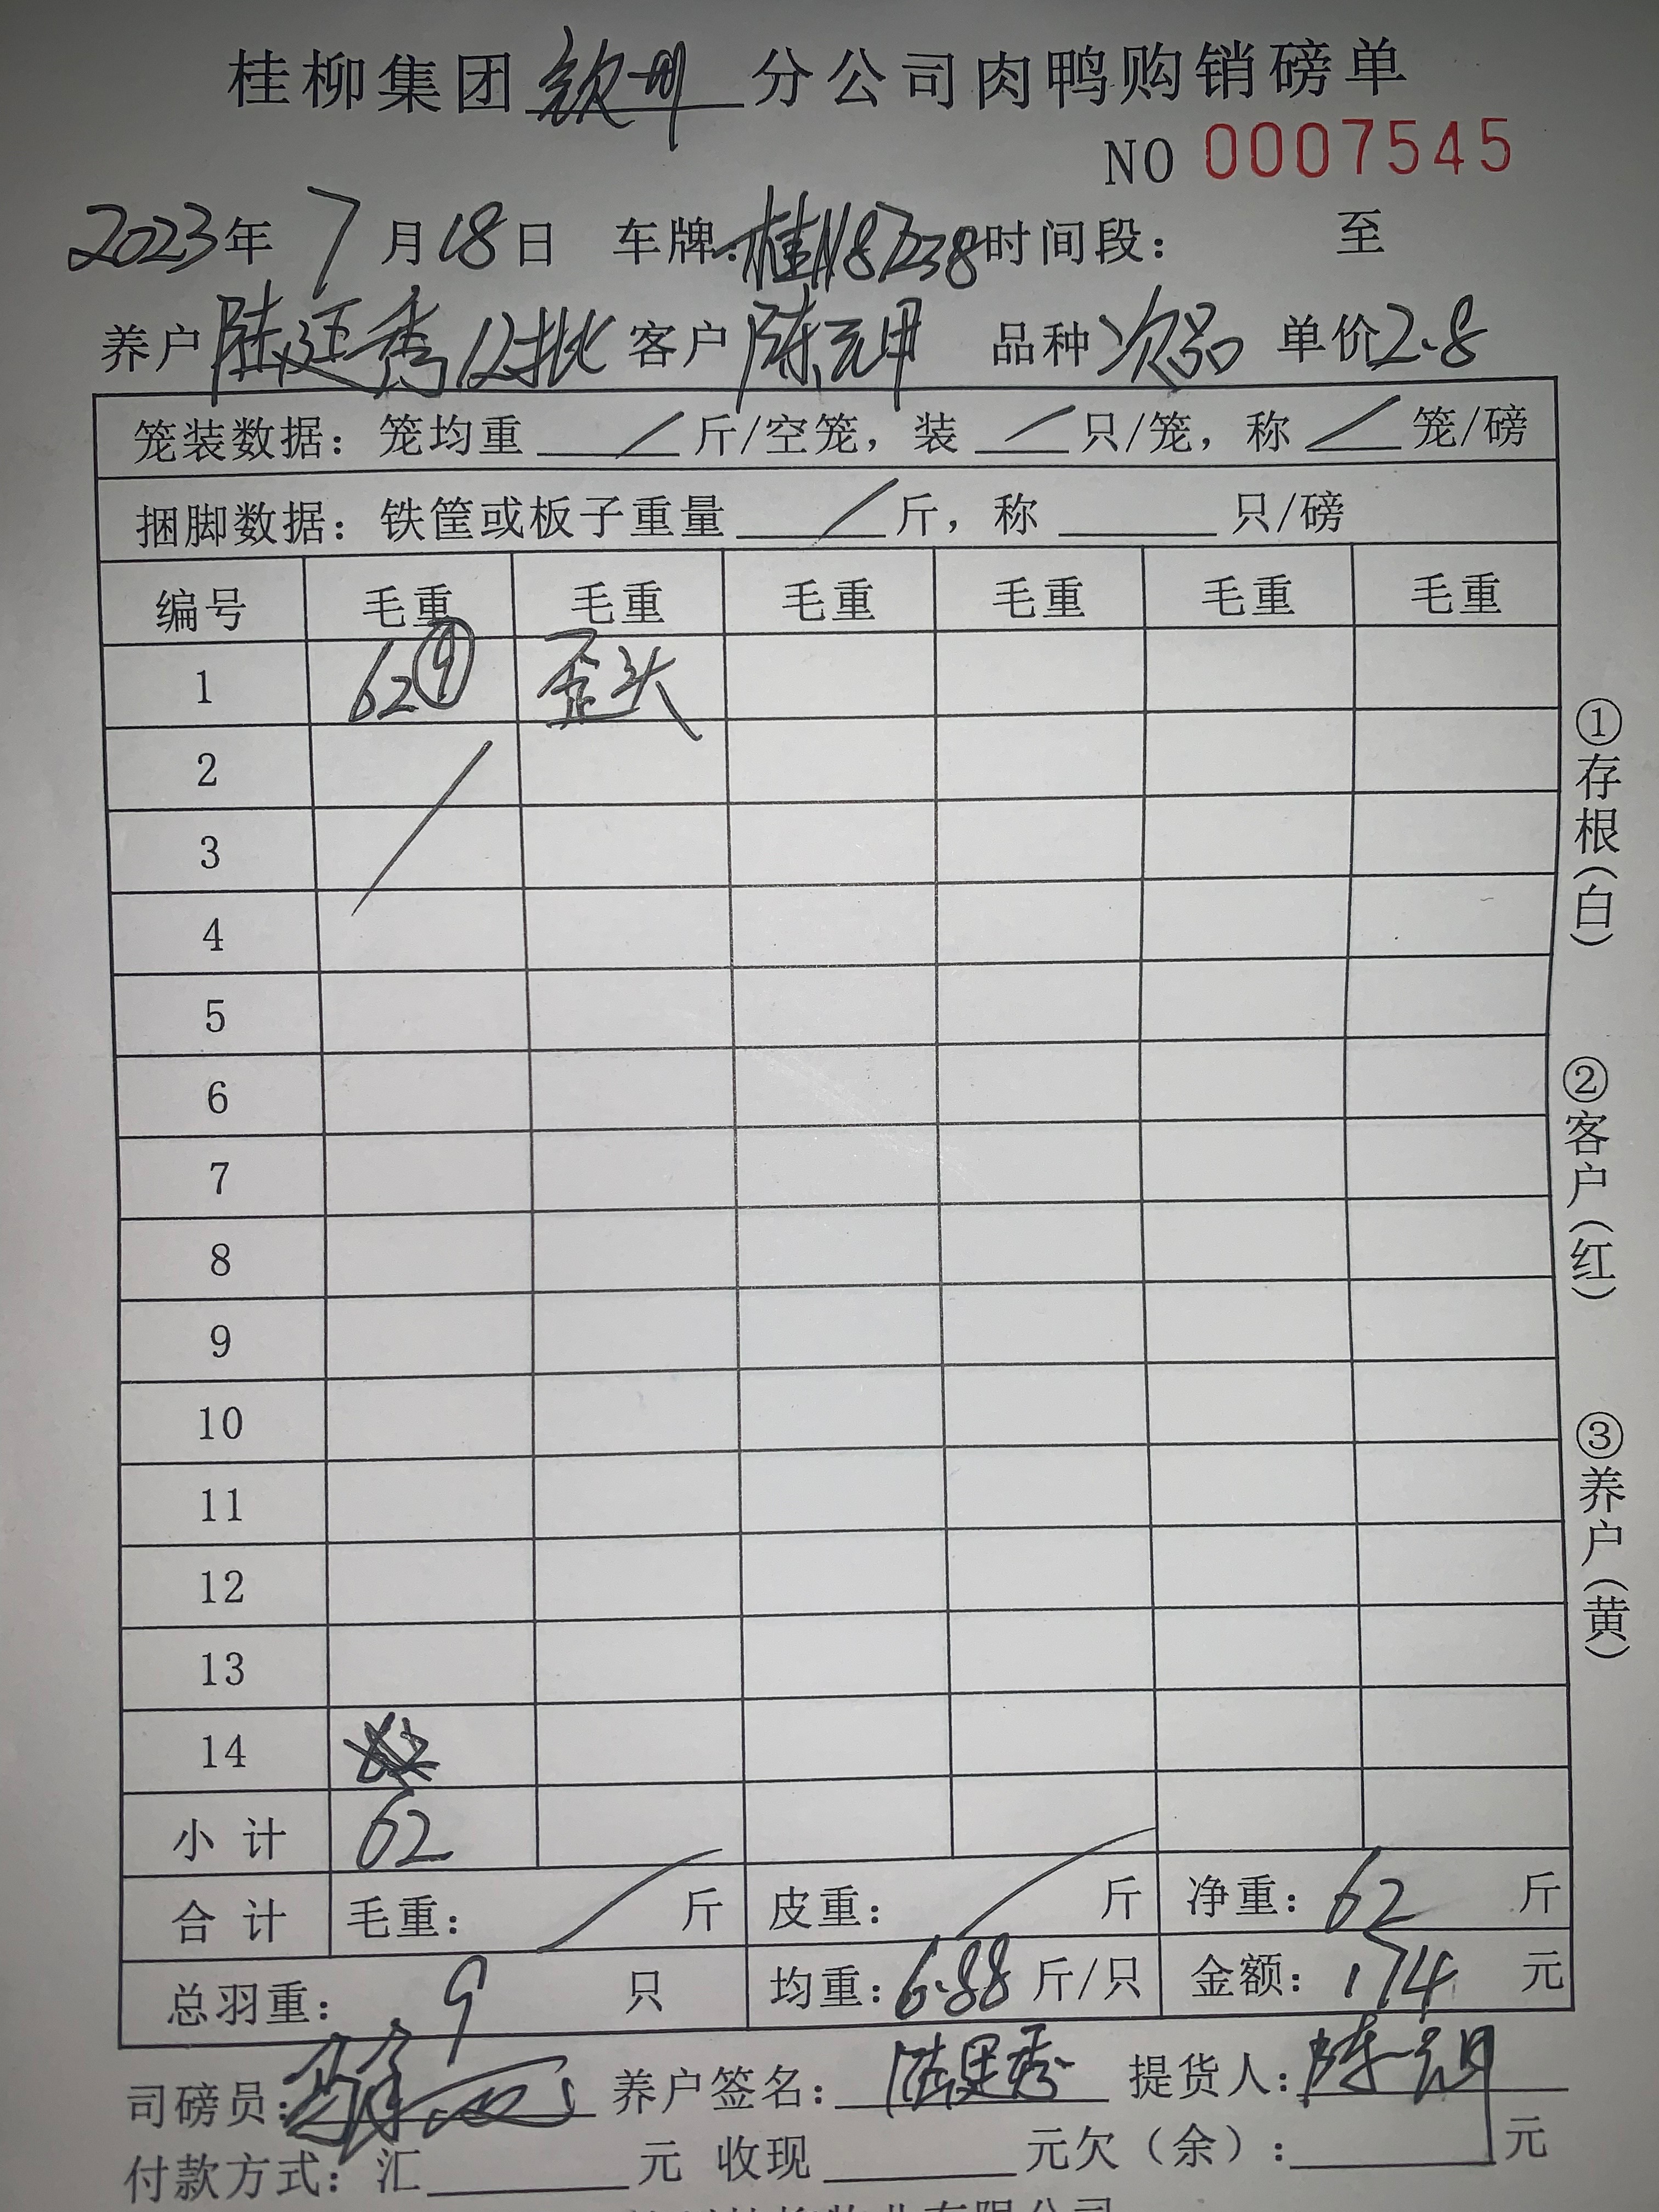 桂柳集团 钦州 分公司肉鸭购销磅单
NO 0007545
2023年 7月18日 车牌:桂N87238 时间段: 至
养户 陆廷秀 12批 客户 陈元甲 品种 次品 单价2.8
笼装数据: 笼均重 / 斤/空笼, 装 / 只/笼, 称 / 笼/磅
捆脚数据: 铁筐或板子重量 / 斤, 称 只/磅
编号 毛重 毛重 毛重 毛重 毛重 毛重
1 62⑨ 歪头
2
3
4
5
6
7
8
9
10
11
12
13
14
小计 62
合计 毛重: / 斤 皮重: / 斤 净重: 62 斤
总羽重: 9 只 均重: 6.88 斤/只 金额: 174 元
司磅员: 养户签名: 提货人:
付款方式: 汇 元 收现 元欠(余): 元
①存根(白)
②客户(红)
③养户(黄)